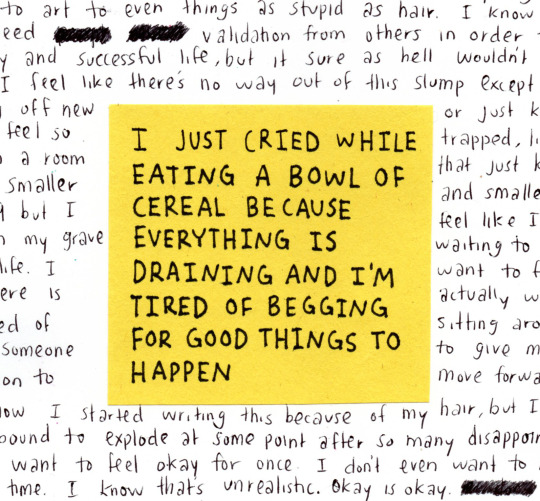 to art to even things as stupid as hair. I know
eed validation from others in order
y and successful life, but it sure as hell wouldn't
I feel like there's no way out of this slump except
off new
feel so
a room
smaller
but I
my grave
life. I
ere is
ed of
someone
on to
I JUST CRIED WHILE
EATING A BOWL OF
CEREAL BECAUSE
EVERYTHING IS
DRAINING AND I'M
TIRED OF BEGGING
FOR GOOD THINGS TO
HAPPEN
or just k
trapped, li
that just k
and smalle
feel like I
waiting to
want to f
actually w
sitting aro
to give m
move forwa
ow I started writing this because of my hair, but I
bound to explode at some point after so many disappoin
want to feel okay for once. I don't even want to
time. I know that's unrealistic. Okay is okay.